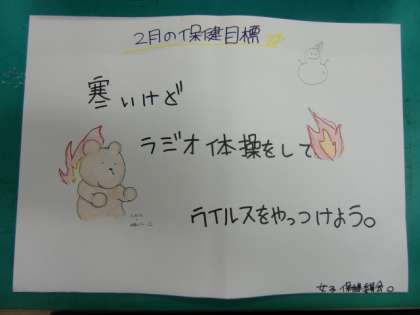 2月の保健目標
寒いけど
ラジオ体操をして
ウイルスをやっつけよう。